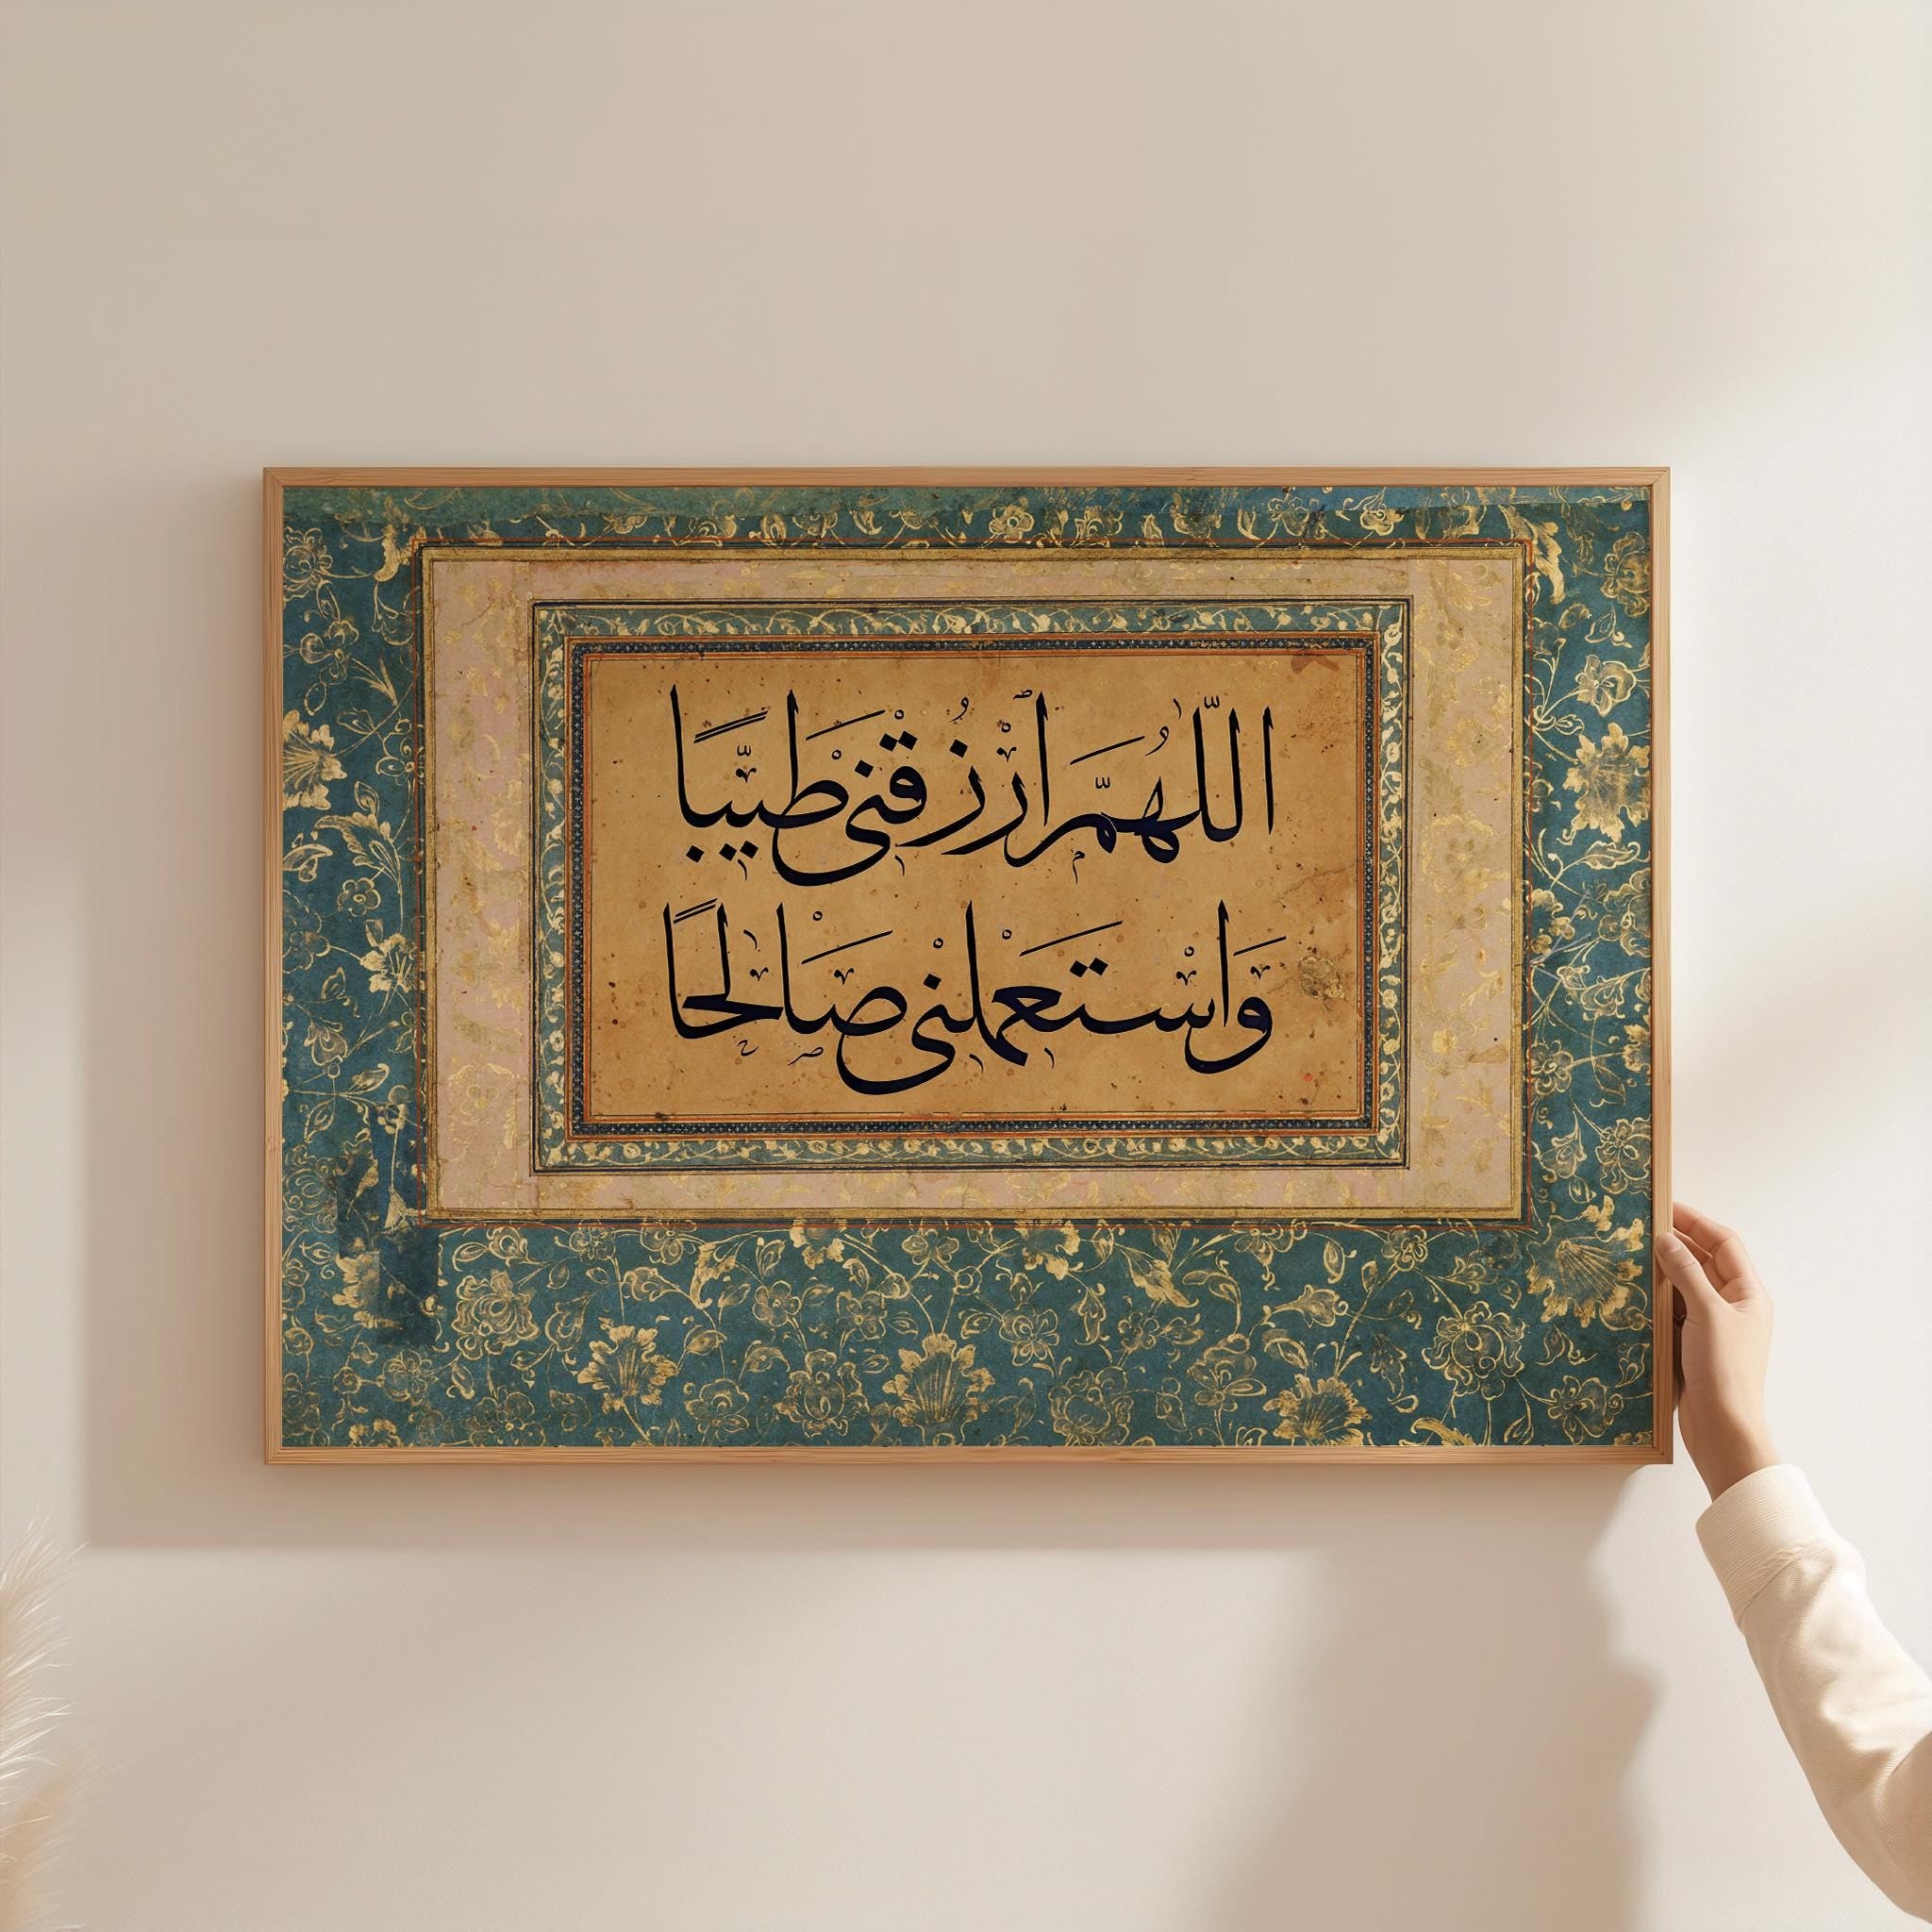 اللّٰهُمَّ ارْزُقْنِي طَيِّبًا
وَاسْتَعْمِلْنِي صَالِحًا